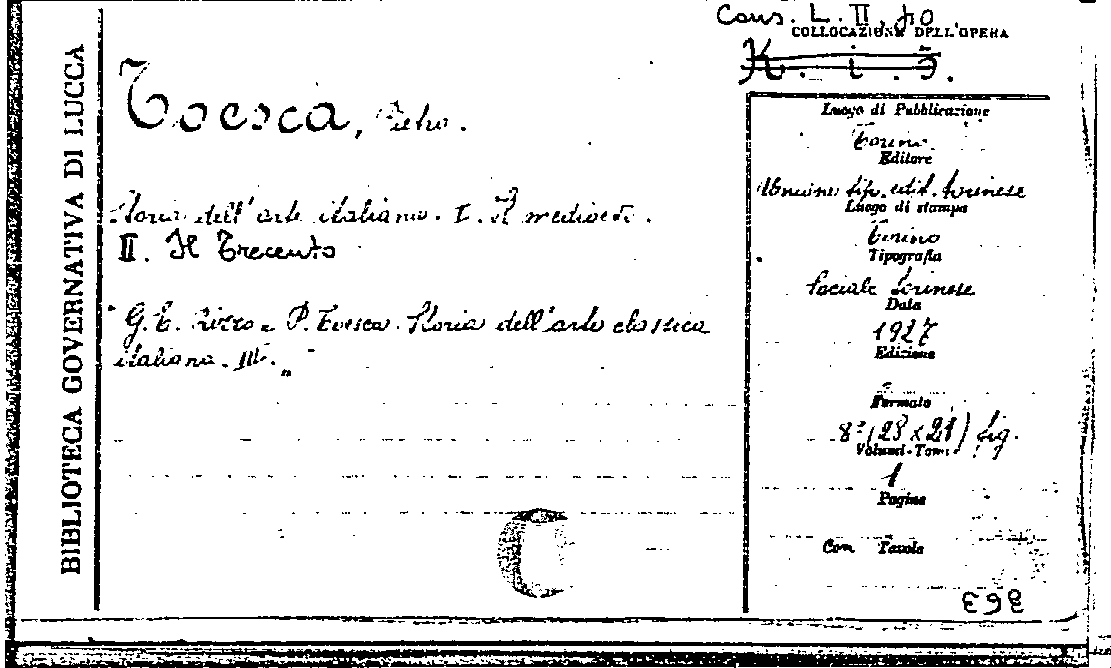 Cons. L. II. 40
COLLOCAZIONE DELL'OPERA
K. i. 3.
BIBLIOTECA GOVERNATIVA DI LUCCA
Toesca, Pietro.
Storia dell'arte italiana. I. Il medioevo.
II. Il Trecento
"G. E. Rizzo e P. Toesca. Storia dell'arte classica
italiana. III."
Luogo di Pubblicazione
Torino
Editore
Unione tip. edit. torinese
Luogo di stampa
Torino
Tipografia
Sociale Torinese
Data
1927
Edizione
Formato
8º (28 x 21) fig.
Volumi-Tomi
1
Pagine
Con Tavole
C